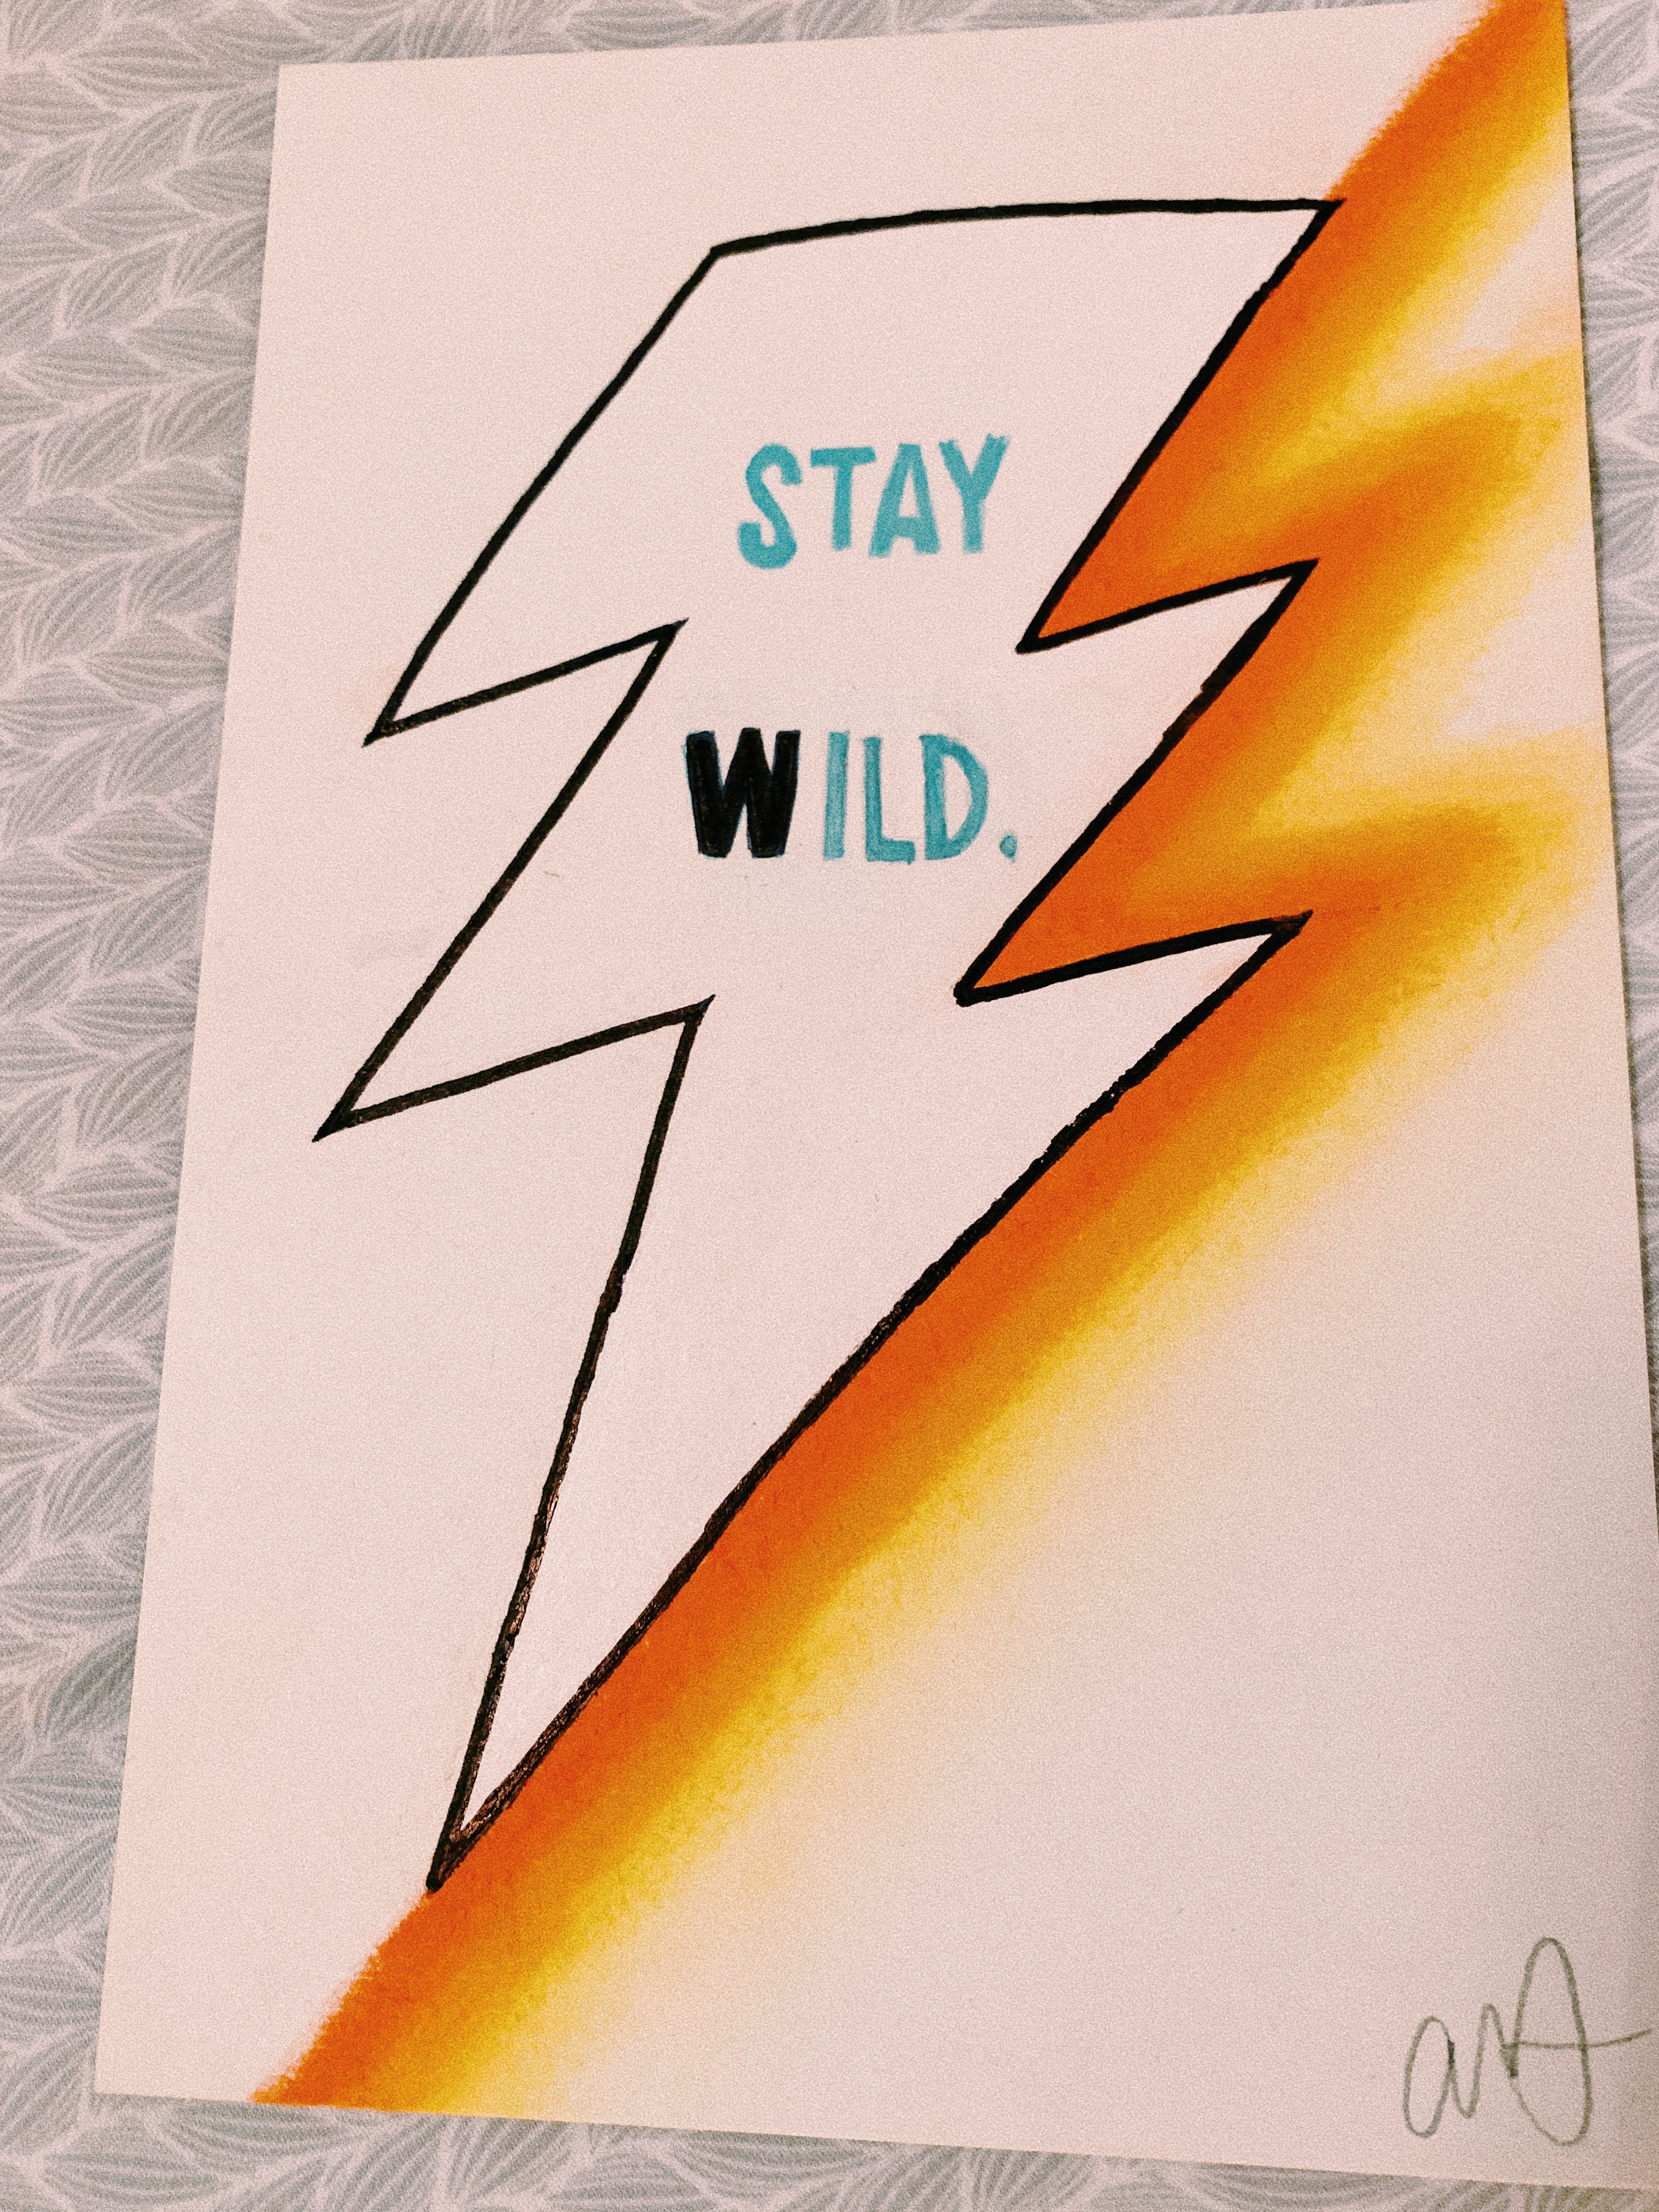 STAY
WILD.